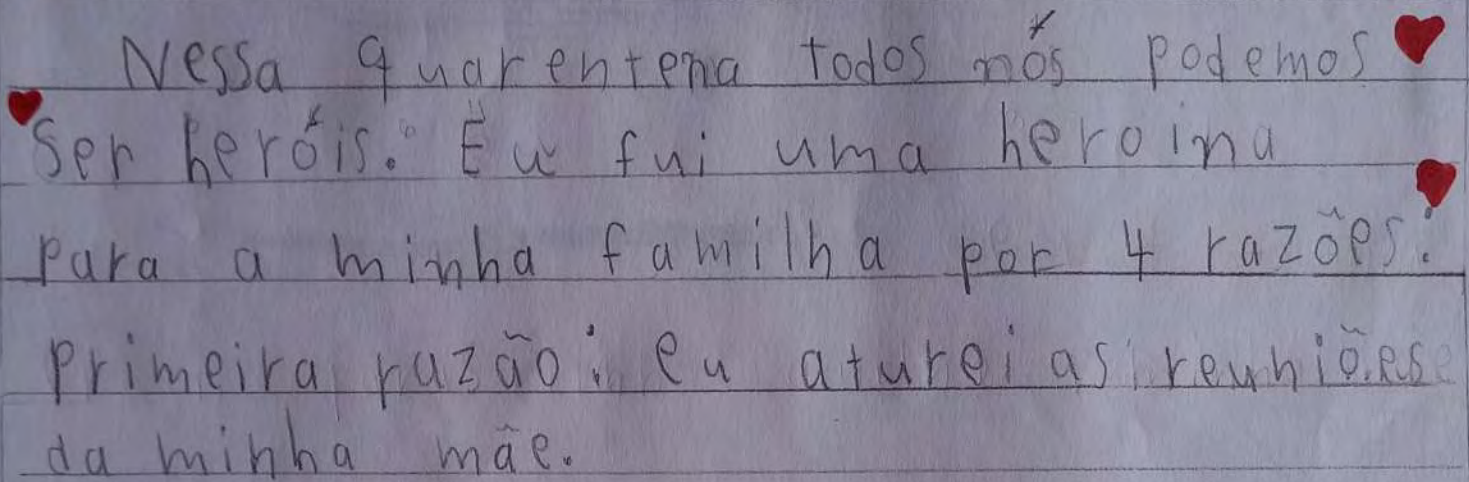 Nessa quarentena todos nós podemos
Ser heróis. Eu fui uma heroina
para a minha familha por 4 razões:
primeira razão: eu aturei as reuniões
da minha mãe.